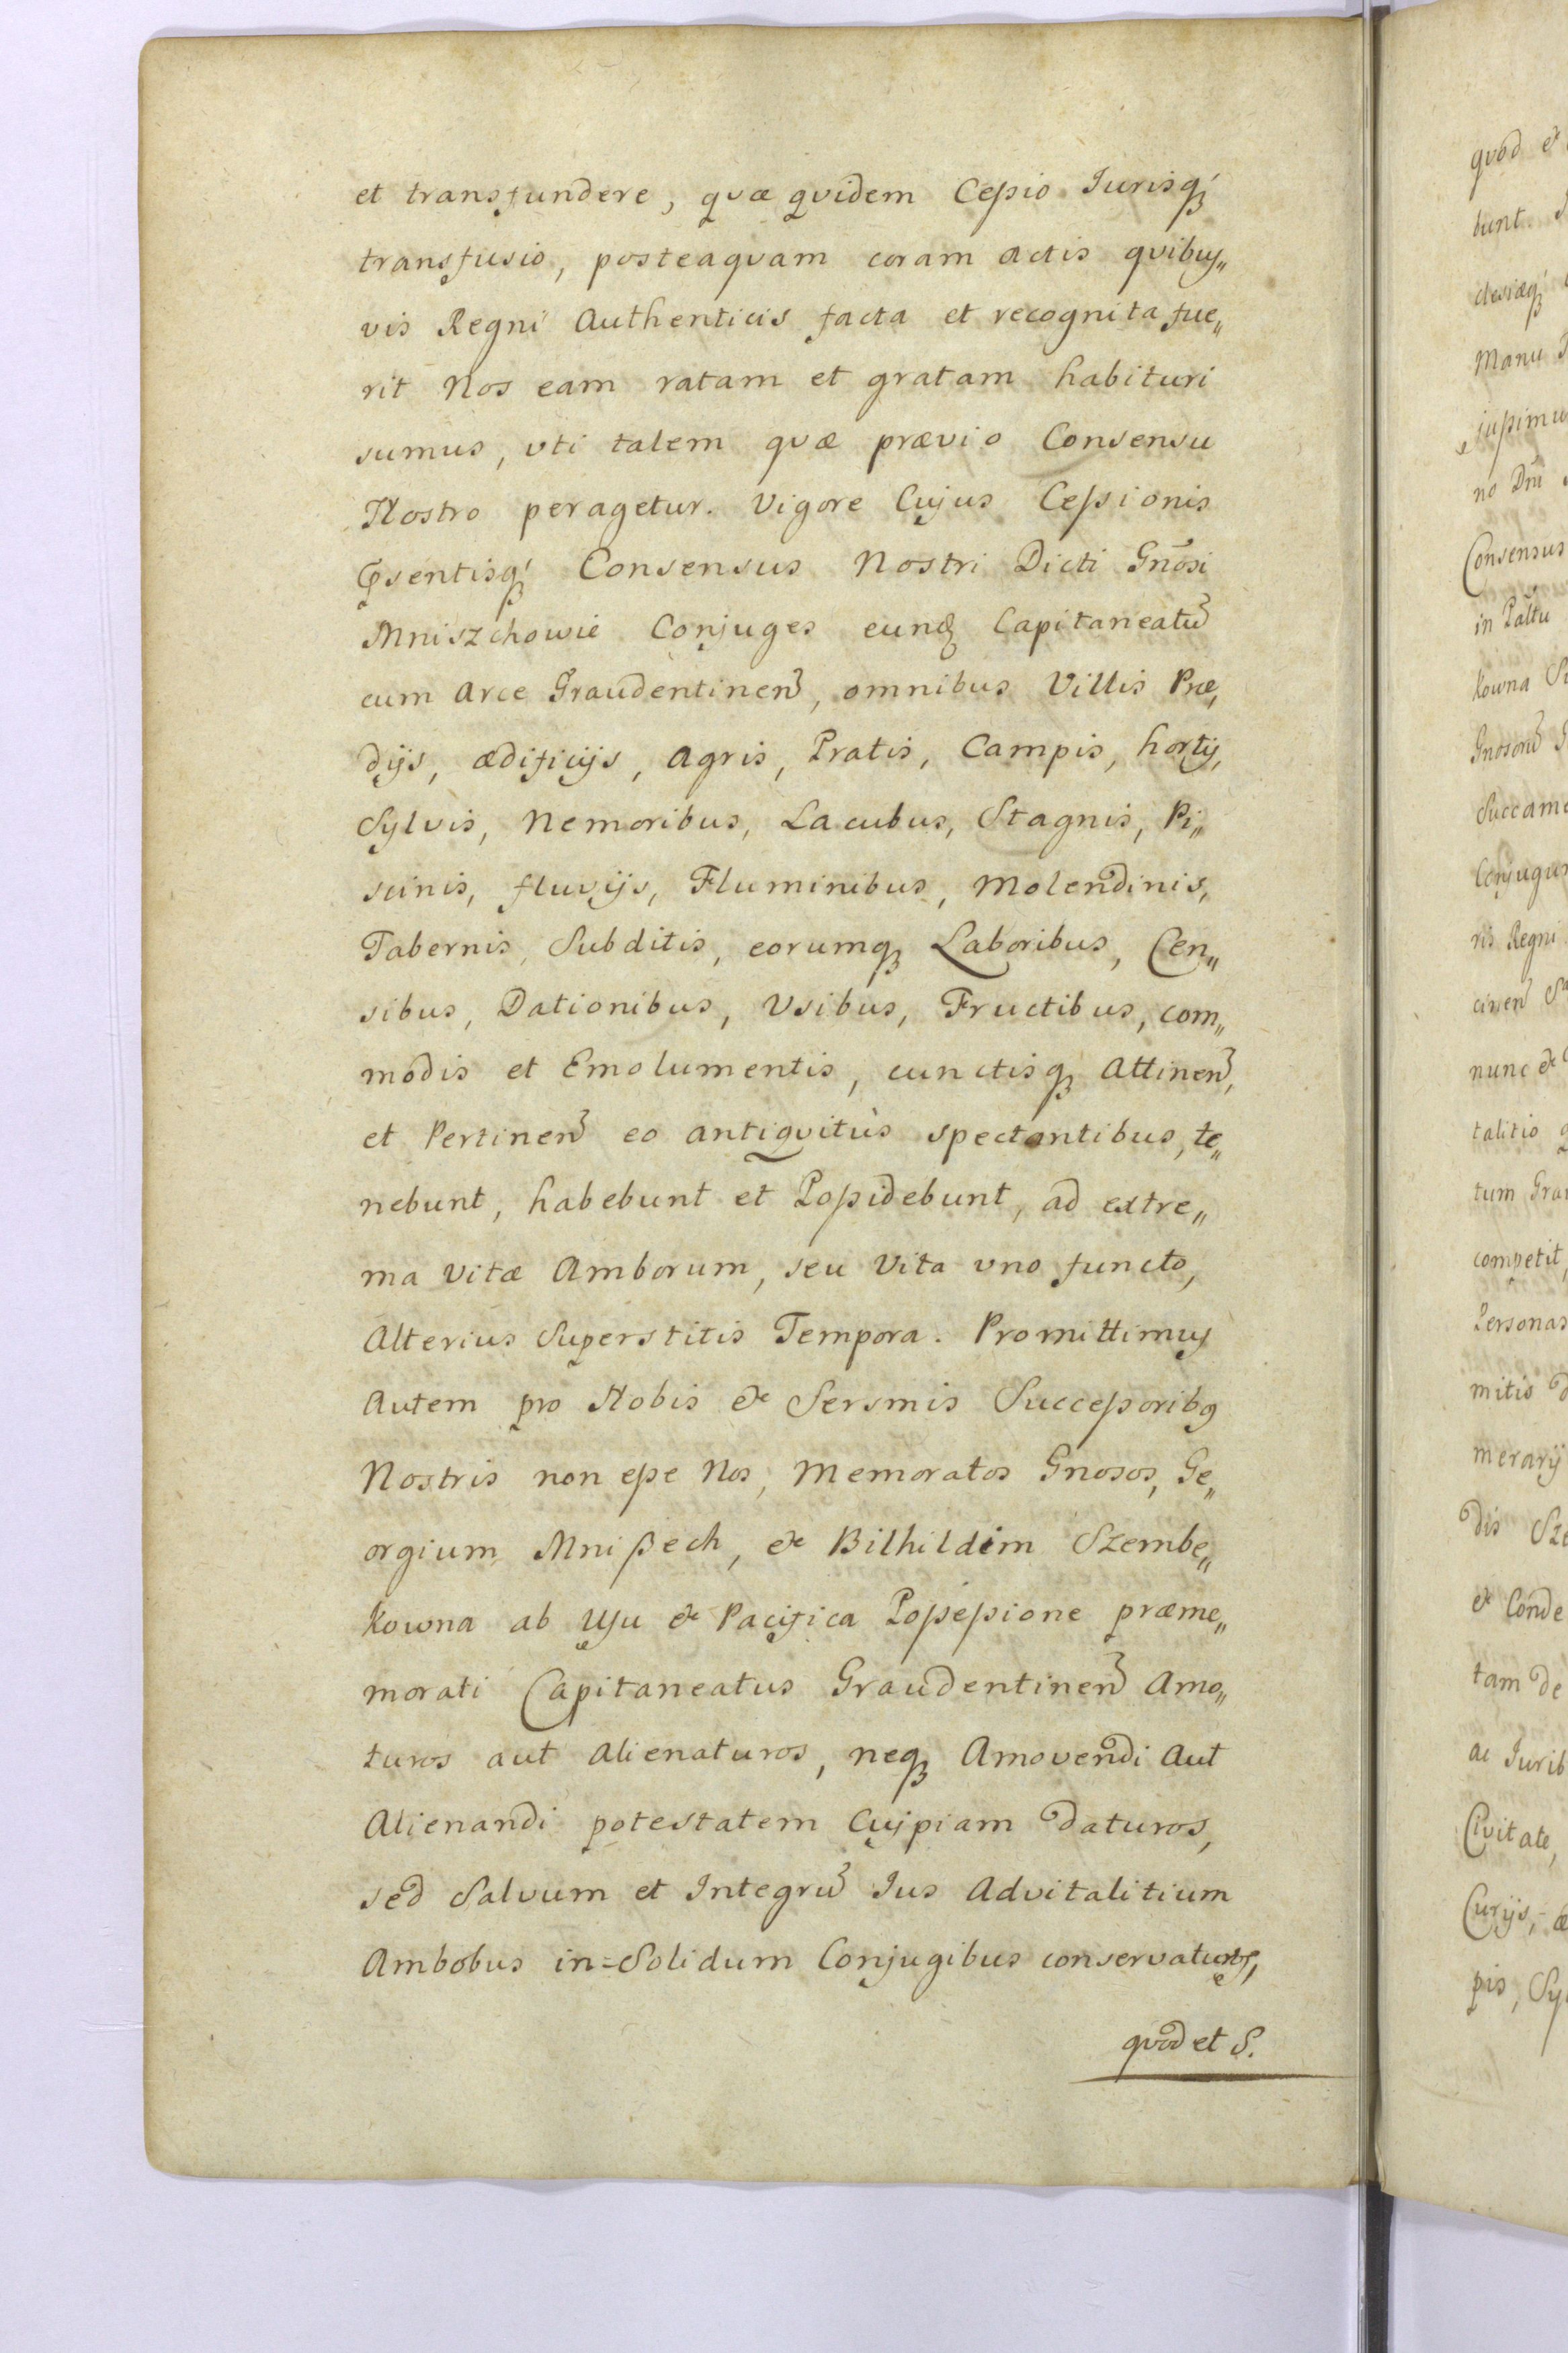 et transfundere, quæ quidem Cessio Jurisq́ꝫ
transfusio, posteaquam coram actis quibus„
vis Regni Authenticis facta et recognita fue„
rit Nos eam ratam et gratam habituri
sumus, vti talem quæ prævio Consensu
Nostro peragetur. Vigore Cujus Cessionis
Pꝛsentisq́ꝫ Consensus Nostri Dicti Gñosi
Mniszchowie Conjuges eundꝫ Capitaneatũ
cum Arce Graudentineñ, omnibus Villis Præ„
dijs, ædificijs, Agris, Pratis, Campis, hortis,
Sylvis, Nemoribus, Lacubus, Stagnis, Pi„
scinis, fluvijs, Fluminibus, Molendinis,
Tabernis, Subditis, eorumqꝫ Laboribus, Cen„
sibus, Dationibus, Vsibus, Fructibus, com„
modis et Emolumentis, cunctisqꝫ Attineñ,
et Pertineñ eo antiquitùs spectantibus, te„
nebunt, habebunt et Possidebunt, ad extre„
ma vitæ Amborum, seu Vita vno functo,
Alterius Superstitis Tempora. Promittimus
Autem pro Nobis & Sersmis Successoribꝯ
Nostris non esse Nos, Memoratos Gnosos, Ge„
orgium Mnißech, & Bilhildem Szembe„
kowna ab Usu & Pacifica Possessione præme„
morati Capitaneatus Graudentineñ Amo„
turos aut Alienaturos, neqꝫ Amovendi Aut
Alienandi potestatem Cuipiam daturos,
sed Salvum et Integrũ Ius Advitalitium
Ambobus in=Solidum Conjugibus conservaturos,
quod et S.
quod et
bunt
clesiæqꝫ
Manu
jussimus
no Dni
Consensus
in Paltu
kowna
Gnosorũ
Succam
Conjugum
ris Regni
cineñ
nunc &
talitio
tum Gra
competit,
Personas
mitis
merarij
dis Sze
& Conde
tam de
ac Jurib
Civitate,
Curijs,
pis, Sy